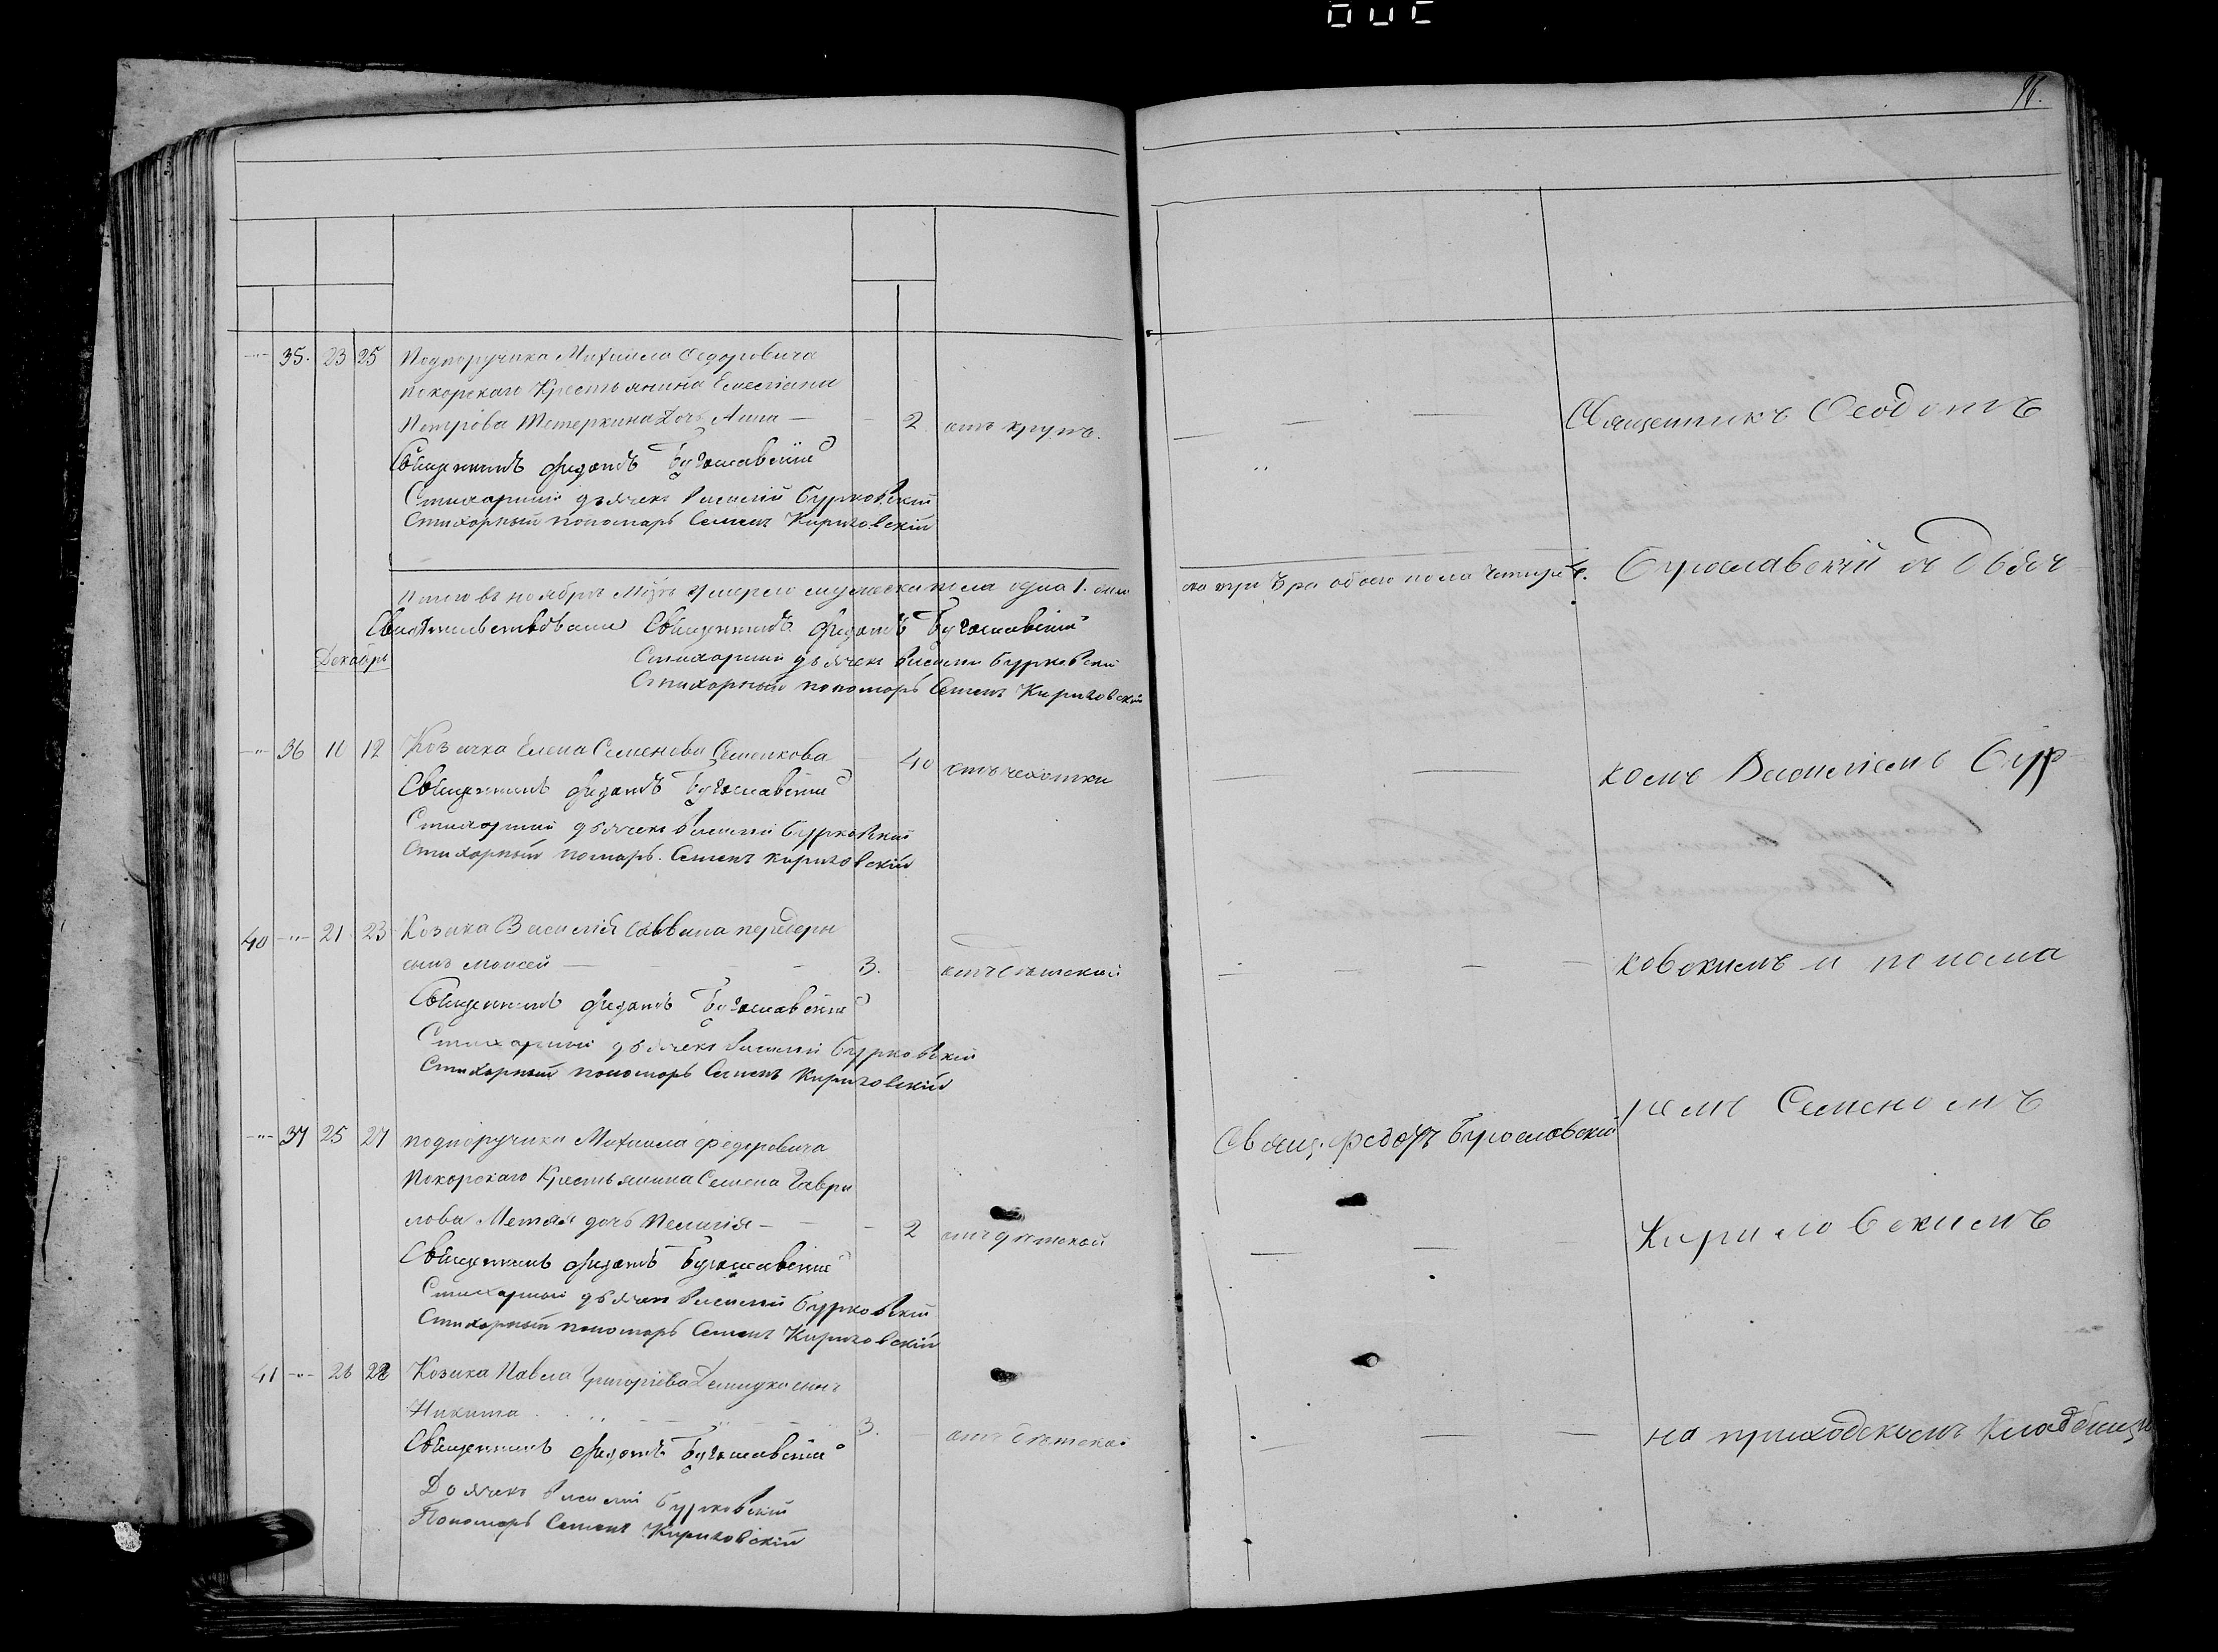 35. 23 25 Подпоручика Михаила Федоровича
Покорскаго Крестьянина Емелiана
Петрова Тетеркина дочь Анна — 2 отъ крупъ.
Священникъ Федотъ Бугославскiй
Стихарный дьячекъ Василiй Бурковскiй
Стихарный пономарь Семенъ Кириловскiй
Итого въ ноябрѣ умерло мужеска пола одна 1.
Свидѣтельствовали Священникъ Федотъ Бугославскiй
Декабрь
Стихарный дьячекъ Василiй Бурковскiй
Стихарный пономарь Семенъ Кириловскiй
36 10 12 Козачка Елена Семенова Семенкова 40 отъ чахотки
Священникъ Федотъ Бугославскiй
Стихарный дьячекъ Василiй Бурковскiй
Стихарный помарь. Семенъ Кириловскiй
40 21 23 Козака Василiя Саввина
сынъ Моисей — 3. отъ дѣтской
Священникъ Федотъ Бугославскiй
Стихарный дьячекъ Василiй Бурковскiй
Стихарный пономарь Семенъ Кириловскiй
37 25 27 подпоручика Михаила Федоровича
Покорскаго Крестьянина Семена Гаври
лова дочь Пелагiя — 2 отъ дѣтской
Священникъ Федотъ Бугославскiй
Стихарный дьячекъ Василiй Бурковскiй
Стихарный пономарь Семенъ Кириловскiй
41 26 28 Козака Павла Григорiева сынъ
Никита 3. отъ дѣтской
Священникъ Федотъ Бугославскiй
Дьячекъ Василiй Бурковскiй
Пономарь Семенъ Кириловскiй
96.
Священникъ Ѳеодотъ
ска три 3 ра обоего пола четыре 4. Бугославскiй съ Дьяч-
комъ Василiемъ Бур-
ковскимъ и понома
ремъ Семеномъ
Свящ. Федотъ Бугославскiй
Кириловскимъ
на приходскомъ кладбищѣ